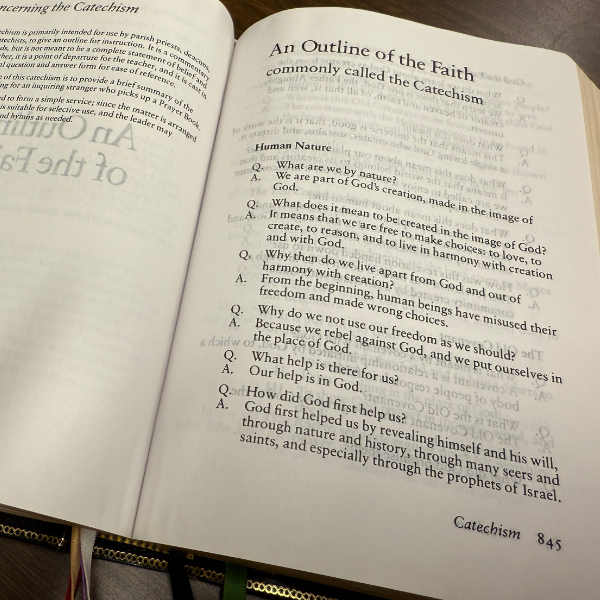 ncerning the Catechism
echism is primarily intended for use by parish priests, deacons,
techists, to give an outline for instruction. It is a commentary
ds, but is not meant to be a complete statement of belief and
it is a point of departure for the teacher, and it is cast in
l question and answer form for ease of reference.
e of this catechism is to provide a brief summary of the
ng for an inquiring stranger who picks up a Prayer Book.
d to form a simple service; since the matter is arranged
is suitable for selective use, and the leader may
nd hymns as needed.
An Outline of the Faith
commonly called the Catechism
Human Nature
Q. What are we by nature?
A. We are part of God's creation, made in the image of
God.
Q. What does it mean to be created in the image of God?
A. It means that we are free to make choices: to love, to
create, to reason, and to live in harmony with creation
and with God.
Q. Why then do we live apart from God and out of
harmony with creation?
A. From the beginning, human beings have misused their
freedom and made wrong choices.
Q. Why do we not use our freedom as we should?
A. Because we rebel against God, and we put ourselves in
the place of God.
Q. What help is there for us?
A. Our help is in God.
Q. How did God first help us?
A. God first helped us by revealing himself and his will,
through nature and history, through many seers and
saints, and especially through the prophets of Israel.
Catechism 845